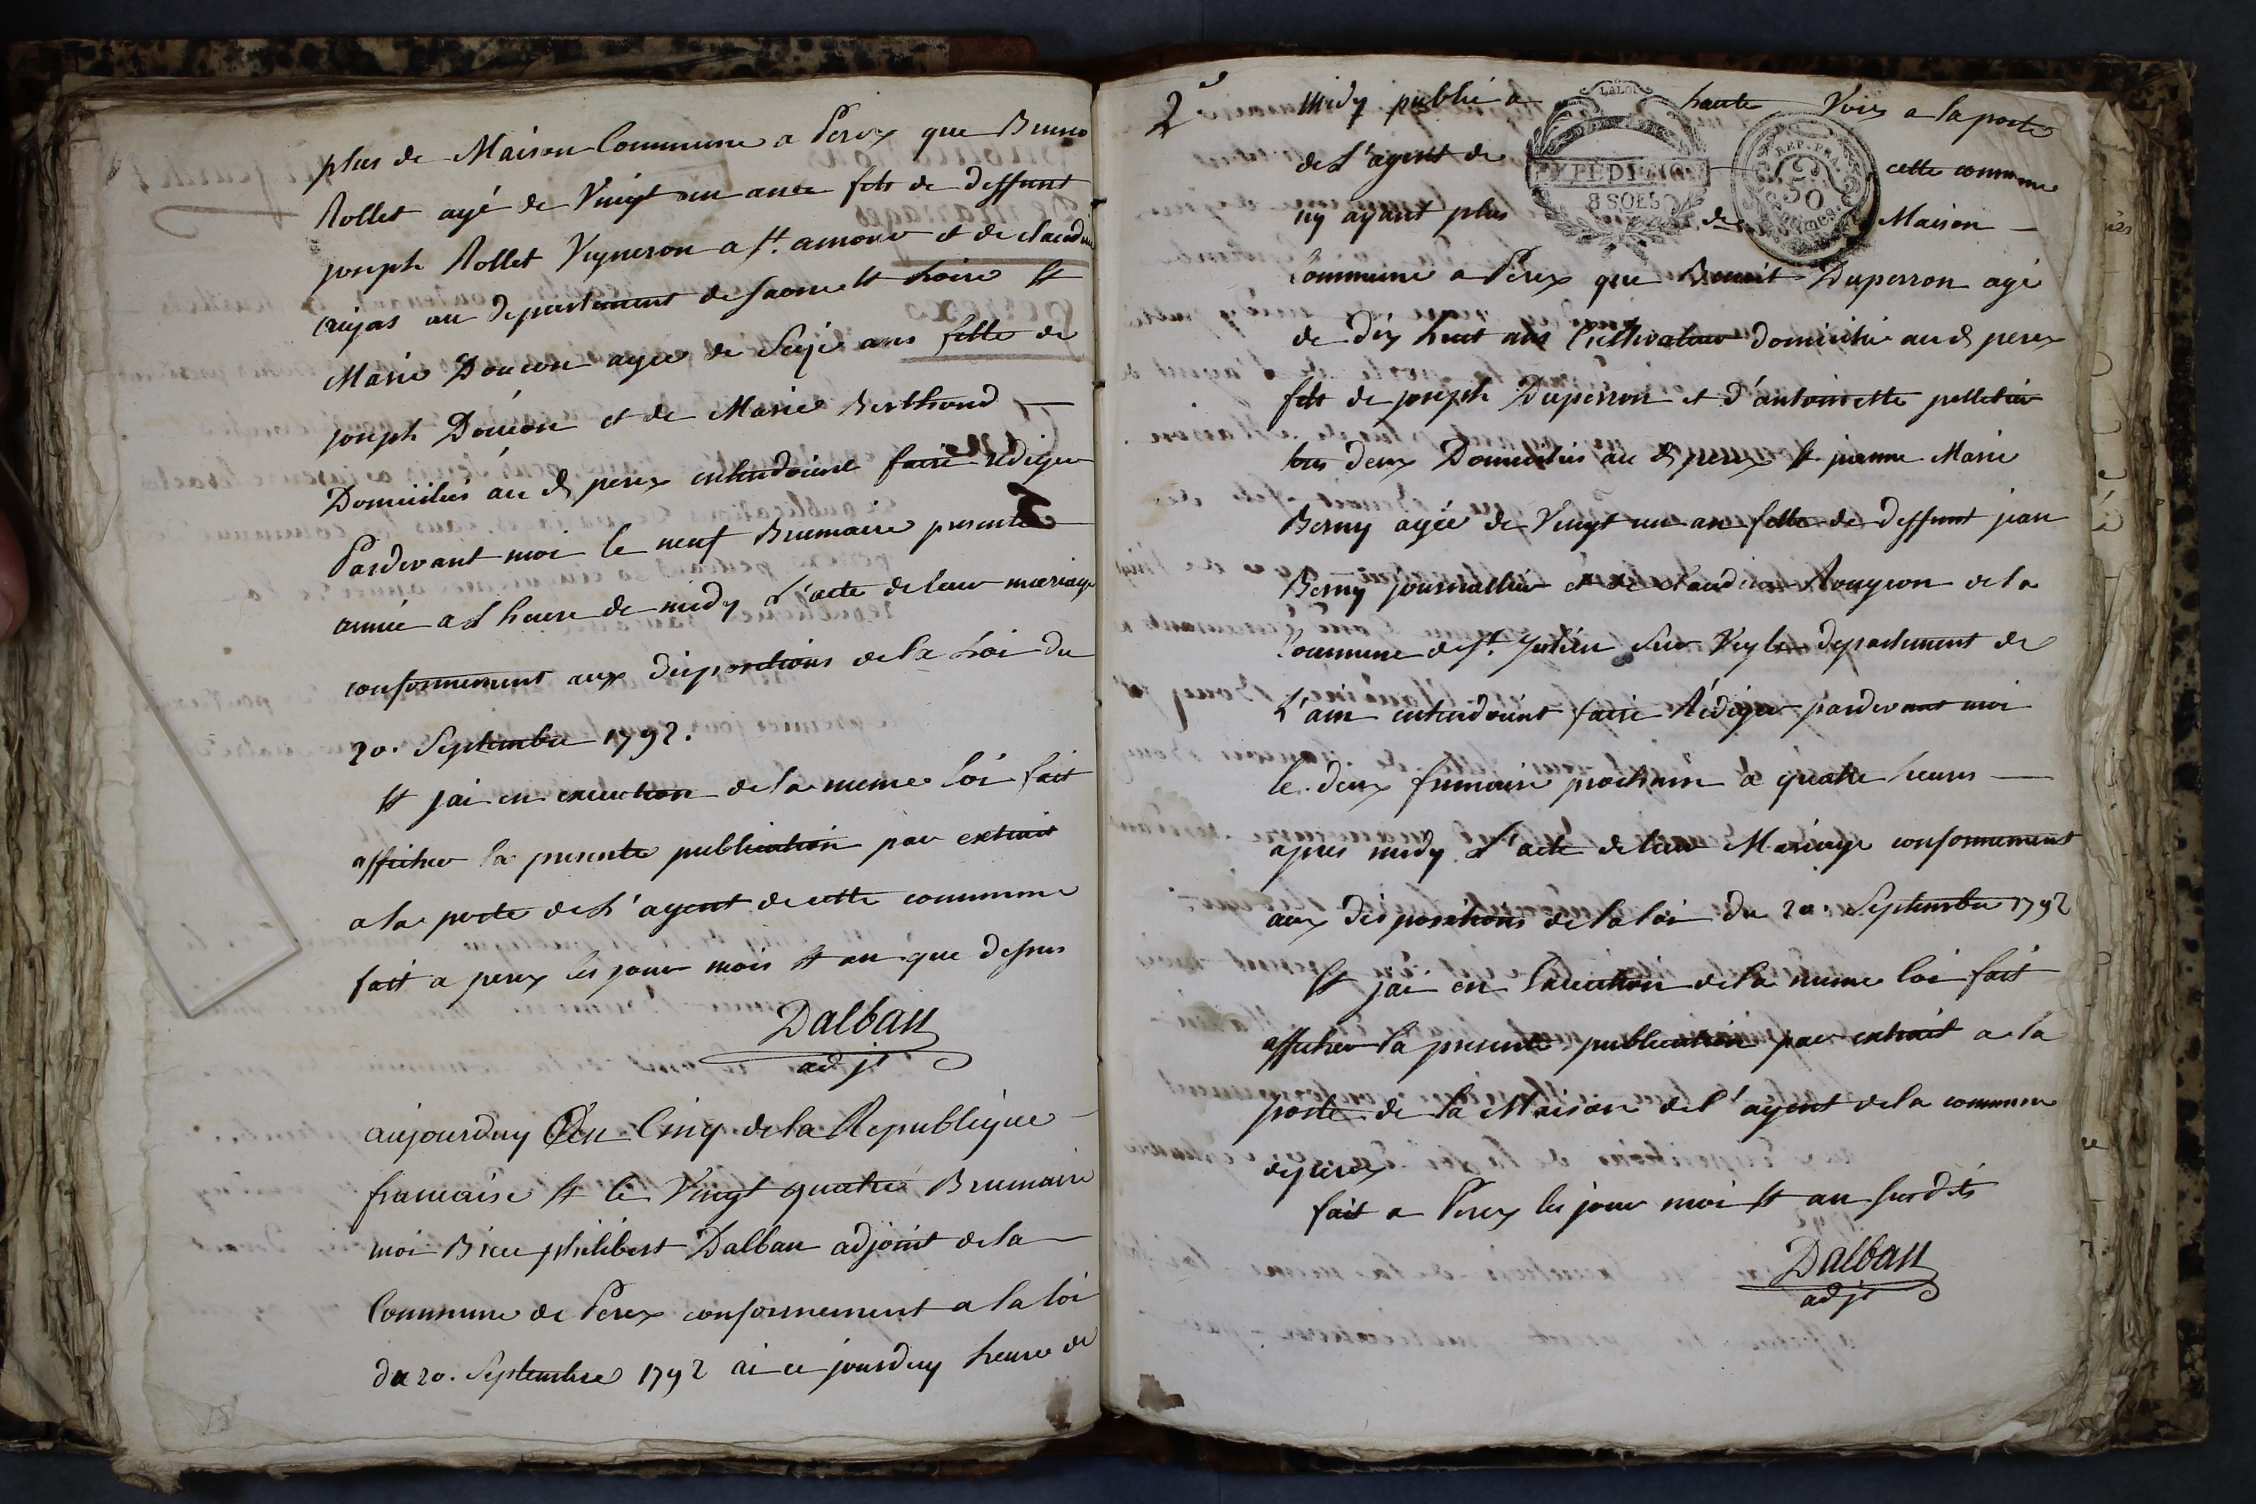 plus de Maison Commune a Perex que Bruno
Rollet agé de Vingt un ans fils de deffunt
joseph Rollet Vigneron a St. amour et de claudine
au departement de saone et Loire et
Marie Doucon agée de Seize ans fille de
joseph Doucon et de Marie Berthoud
Domiciliés au d perex entendoient faire rediger
Pardevant moi le neuf Brumaire presente
année a L heure de midy L'acte de leur mariage
conformement aux dispositions de la Loi du
20. Septembre 1792.
et jai en execution de la meme loi fait
afficher la presente publication par extrait
a la porte de L'agent de cette commune
fait a perex les jour mois et an que dessus
Dalban
adjt
aujourduy L'an Cinq de la Republique
francaise et le Vingt quatre Brumaire
moi Brice philibert Dalban adjoint de la
Commune de Perex conformement a la loi
du 20. Septembre 1792 ai ce jourduy heure de
2e
midy publié a haute Voix a la porte
de L'agent de cette commune
ny ayant plus de Maison
Commune a Perex que Benoit Duperron agé
de dix huit ans Cultivateur domicilié au d perex
fils de joseph Duperron et d'antoinette pelletier
tous deux Domiciliés au d perex et jeanne Marie
Berny agée de Vingt un an fille de deffunt jean
Berny journallier et de claudine Rougeon de la
Commune de St. Julien Sur Veyle departement de
L'ain entendoient faire Rédiger pardevant moi
le deux frimaire prochain a quatre heures
apres midy L'acte de leur Mariage conformement
aux dispositions de la loi du 20. Septembre 1792
et jai en Execution de la meme loi fait
afficher la presente publication par extrait a la
porte de la Maison de l'agent de la commune
de perex
fait a Perex les jour moi et an susdits
Dalban
adjt
LA LOI
EXPEDITION
8 SOLS
REP. FRA.
50
Cmes.